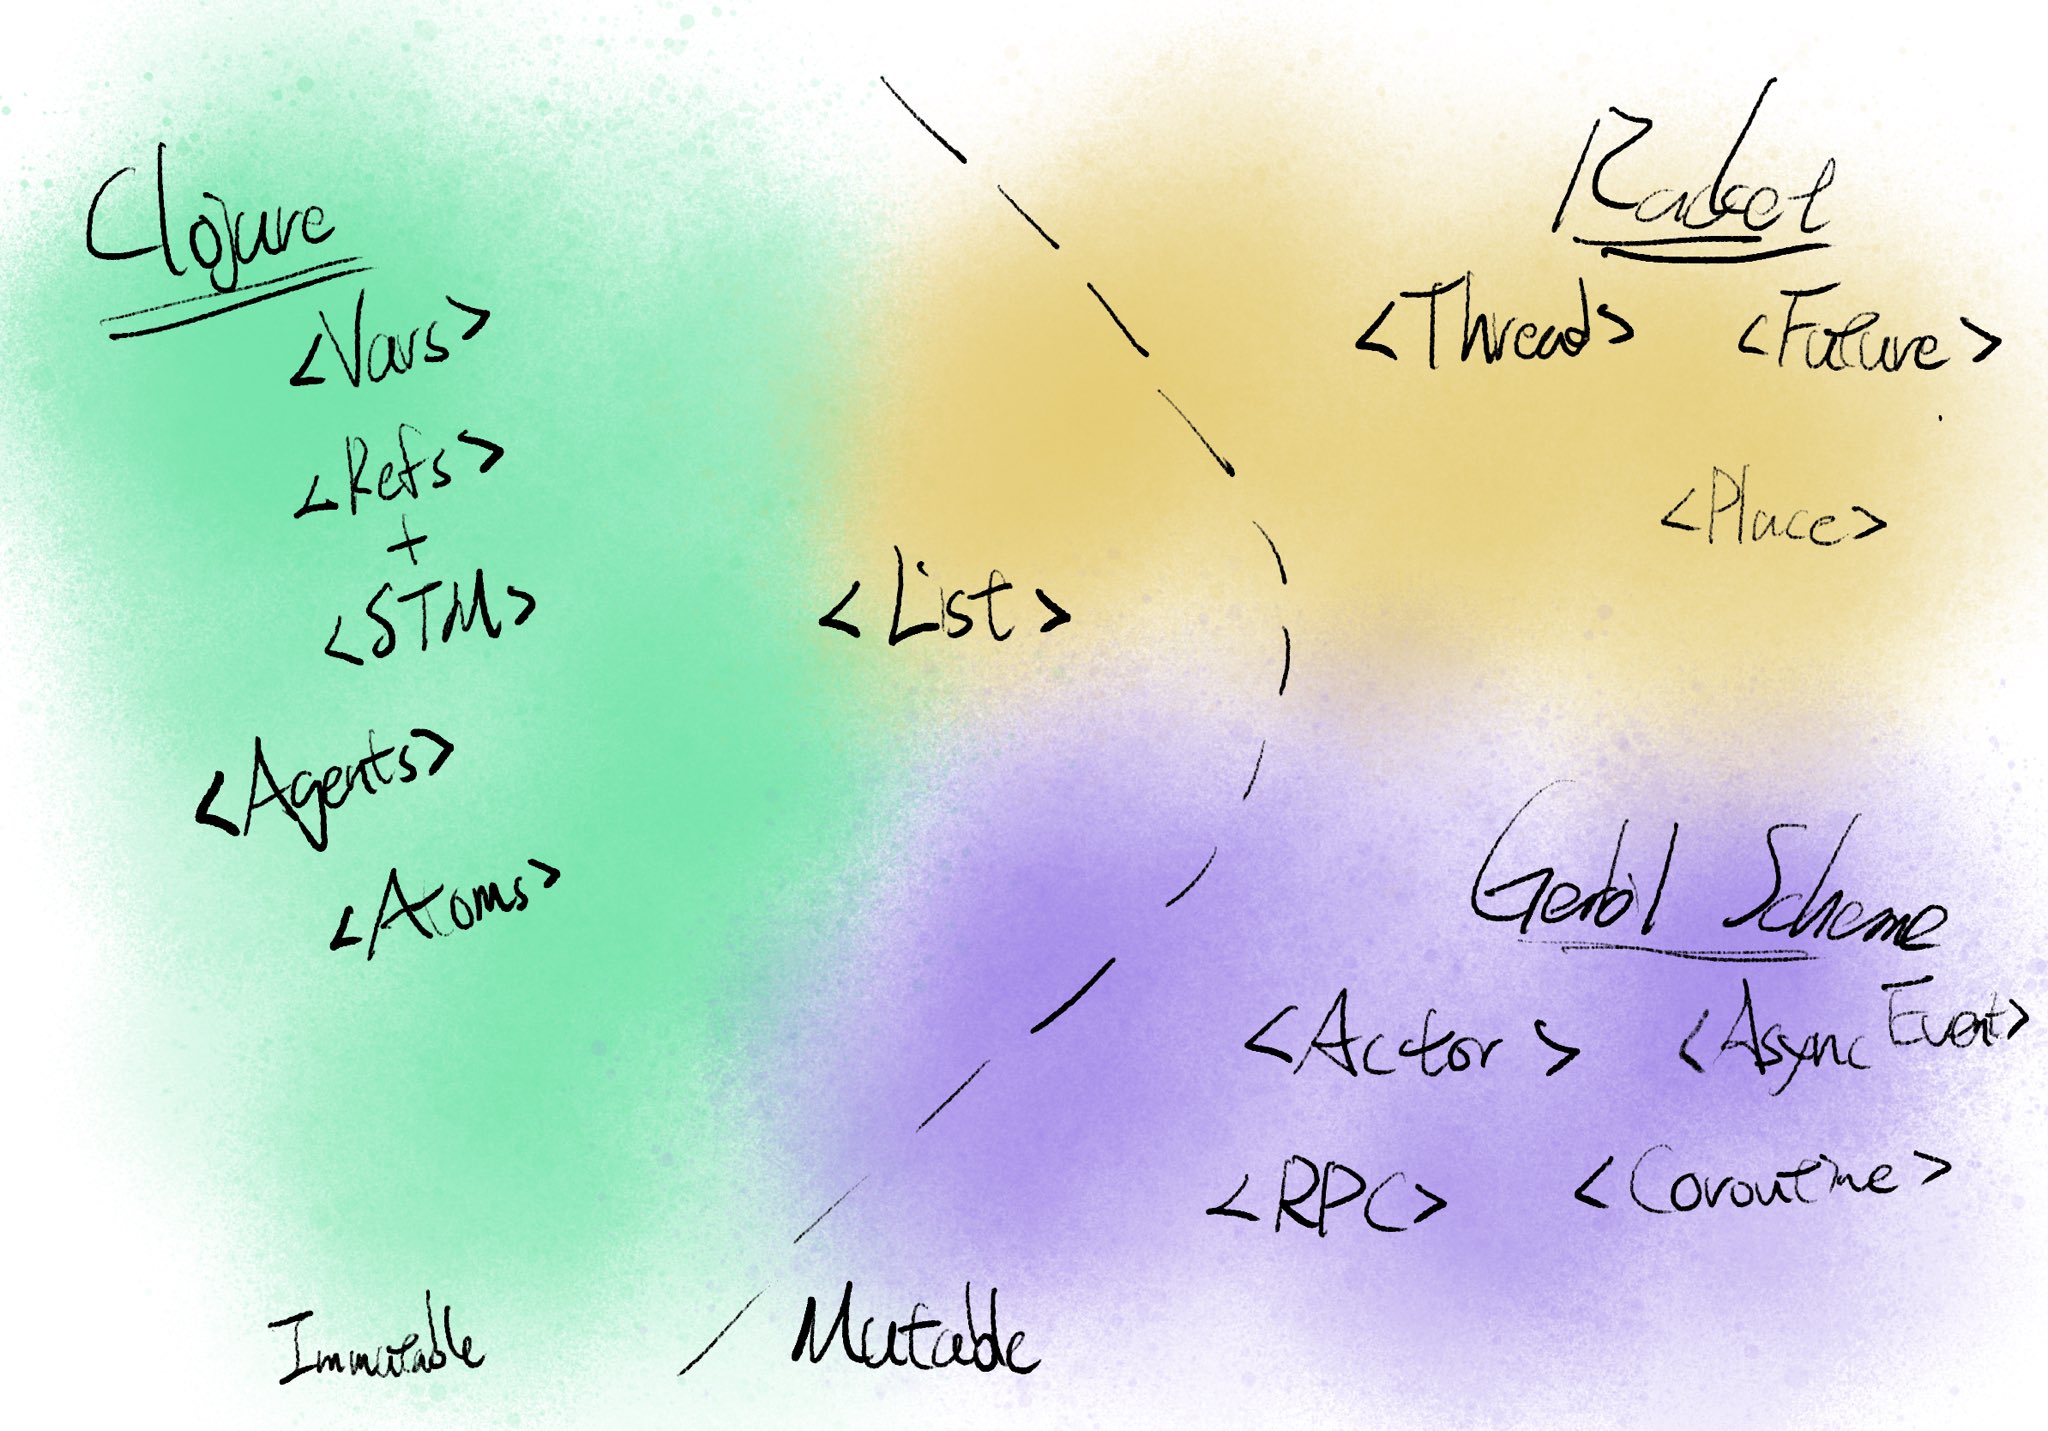 Clojure
<Vars>
<Refs>
+
<STM>
<Agents>
<Atoms>
<List>
Racket
<Thread> <Future>
<Place>
Gerbil Scheme
<Actor> <Async Event>
<RPC> <Coroutine>
Immutable Mutable